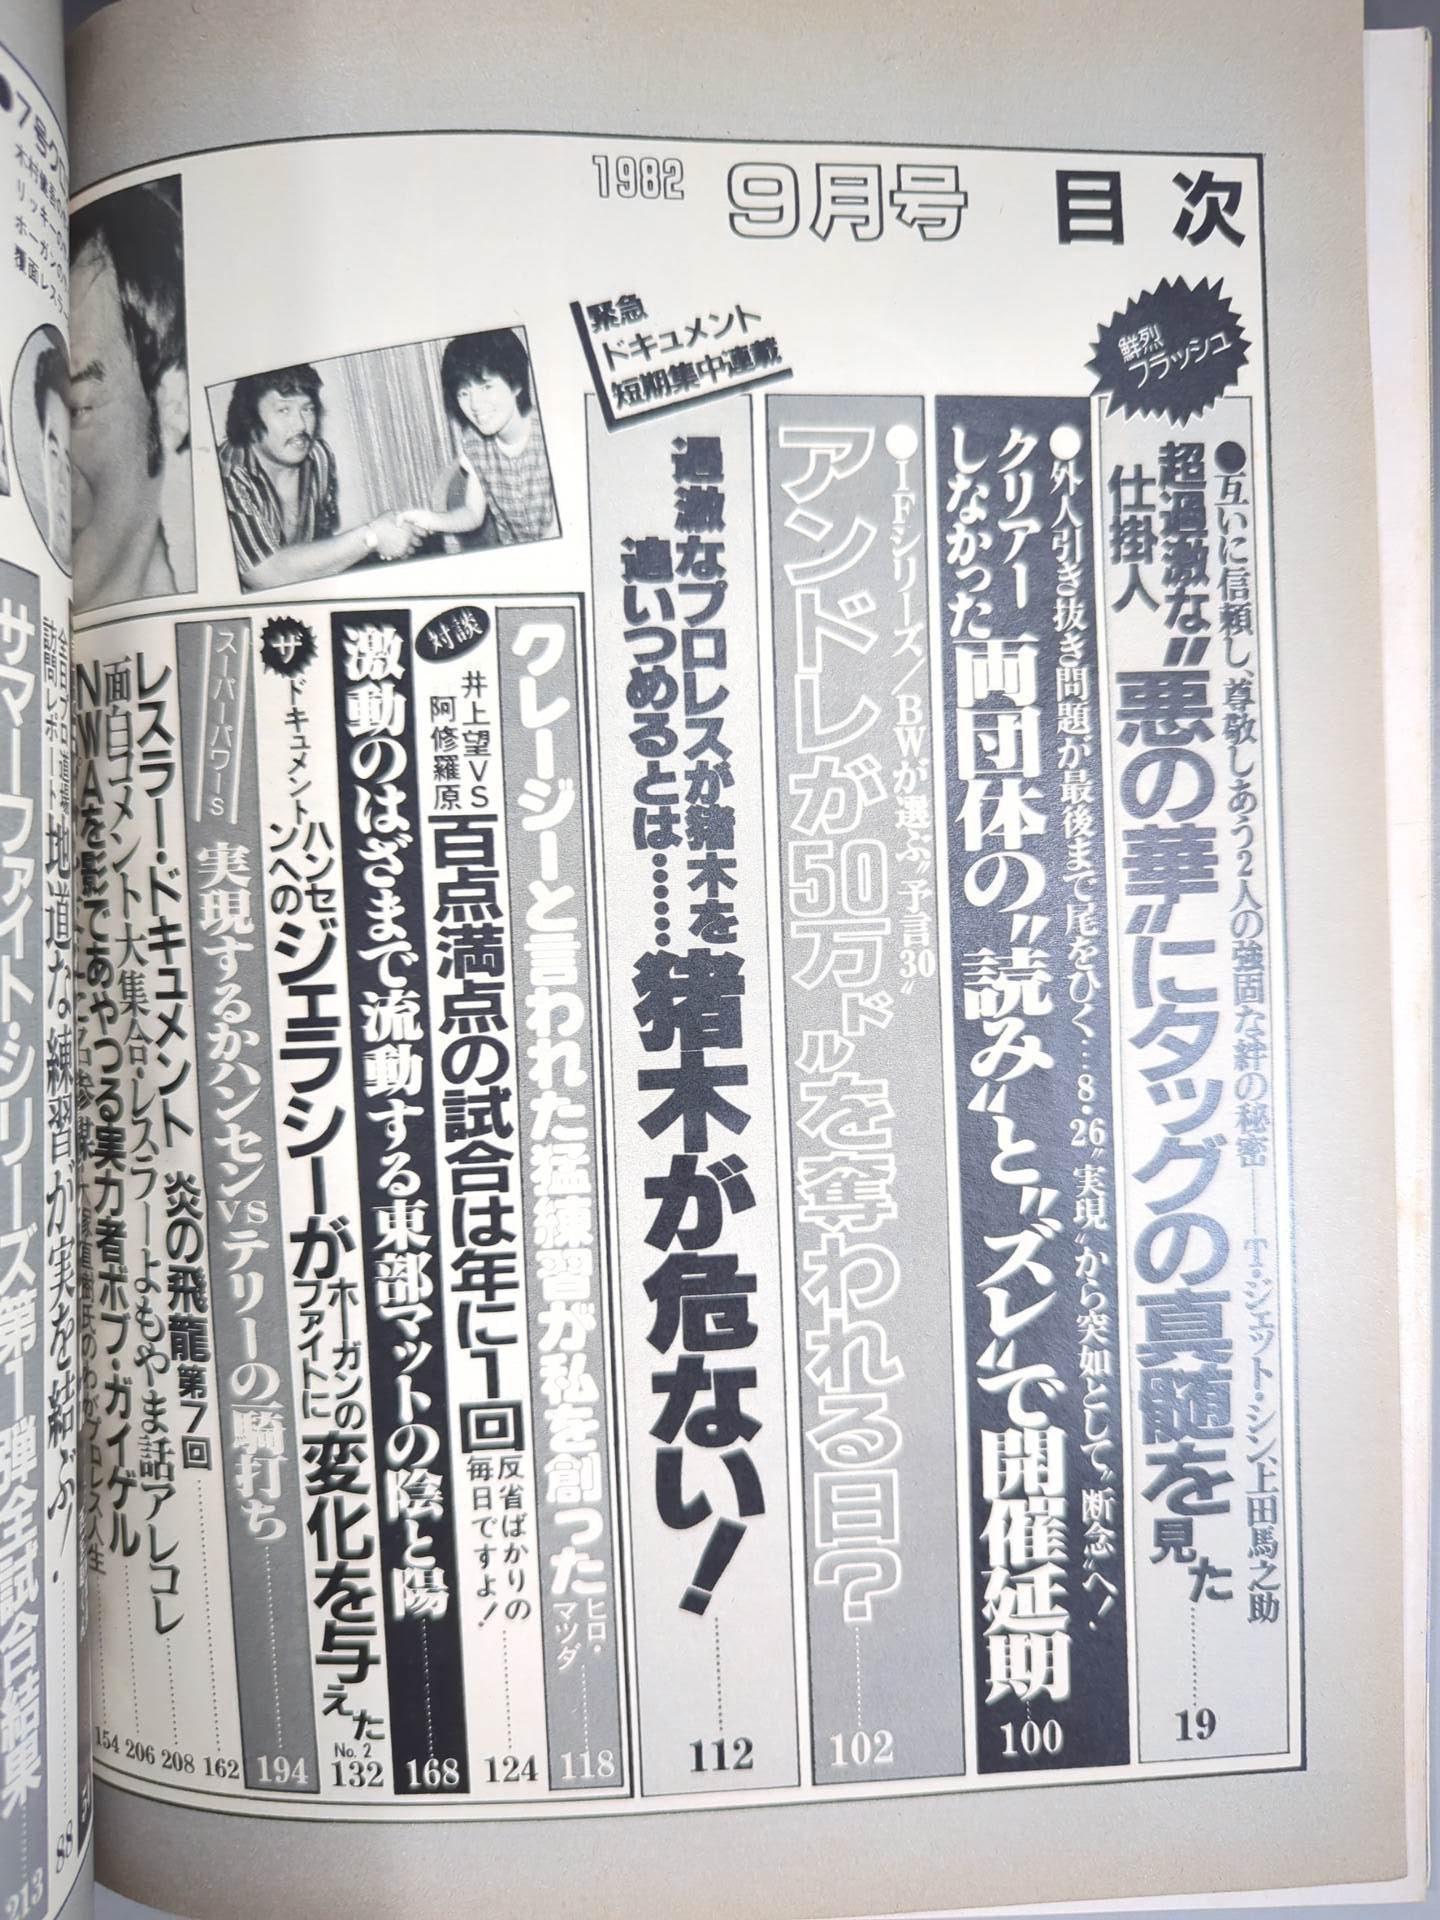 1982 9月号 目次
鮮烈フラッシュ
●互いに信頼し、尊敬しあう2人の強固な絆の秘密──T・ジェット・シン、上田馬之助
超過激な仕掛人
"悪の華"にタッグの真髄を見た……19
●外人引き抜き問題が最後まで尾をひく…8・26"実現"から突如として"断念"へ!
クリアーしなかった両団体の"読み"と"ズレ"で開催延期……100
●IFシリーズ/BWが選ぶ"予言30"
アンドレが50万ドルを奪われる日?……102
緊急
ドキュメント
短期集中連載
過激なプロレスが猪木を
追いつめるとは……
猪木が危ない!……112
クレージーと言われた猛練習が私を創った ヒロ・マツダ……118
対談
井上望VS
阿修羅原
百点満点の試合は年に1回 反省ばかりの毎日ですよ!……124
激動のはざまで流動する東部マットの陰と陽……168
ザ・ドキュメント
ハンセンへのジェラシーがホーガンのファイトに変化を与えた No.2 132
スーパーパワーS
実現するかハンセンvsテリーの一騎打ち……194
炎の飛龍第7回……162
レスラー・ドキュメント
よもやま話アレコレ……208
面白コメント大集合・レスラー……206
NWAを影であやつる実力者ボブ・ガイゲル……154
訪問レポート
地道な練習が実を結ぶ/……88
サマーファイト・シリーズ第1弾全試合結果……213
●7号
木村健吾の
リッキーの
ホーガンの
覆面レスラー